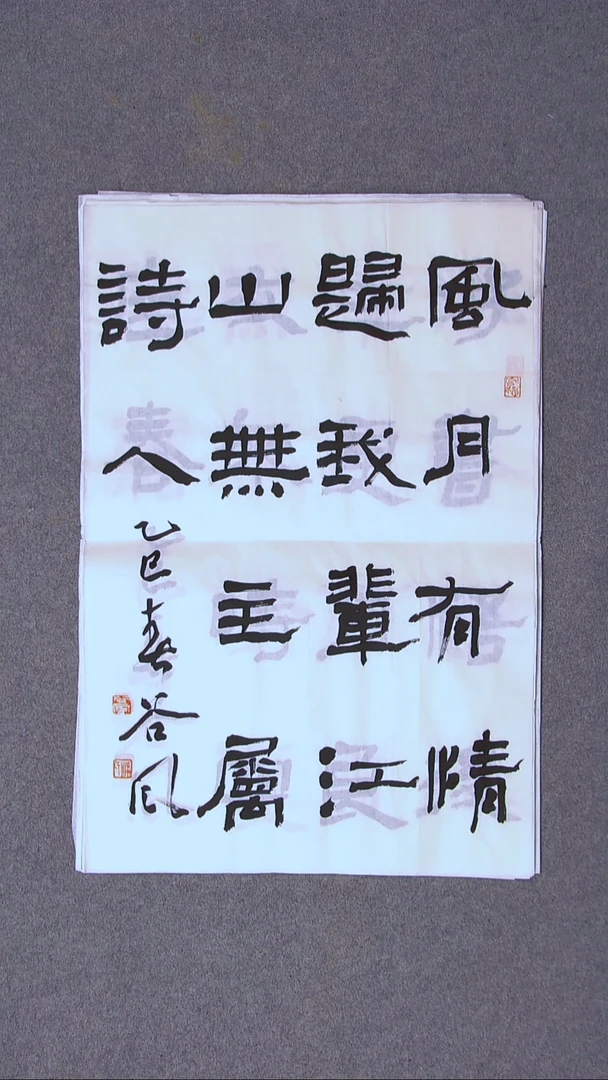 風月有情
歸我輩江
山無主屬
詩人
乙巳春谷風